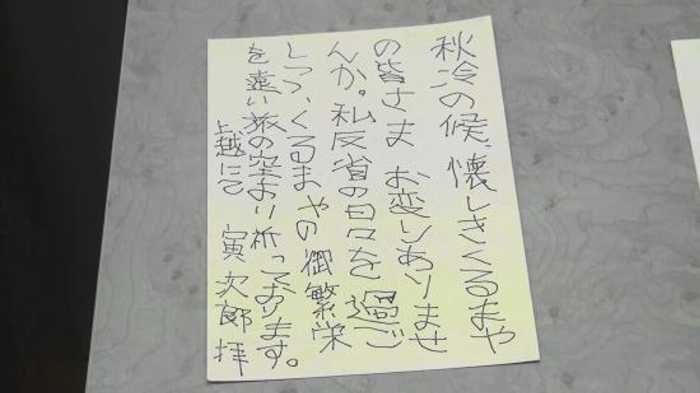 秋冷の候、懐しきくるまや
の皆さま お変りありませ
んか。私反省の日々を過ご
しつつ、くるまやの御繁栄
を遠い旅の空より祈っております。
上越にて 寅次郎拝